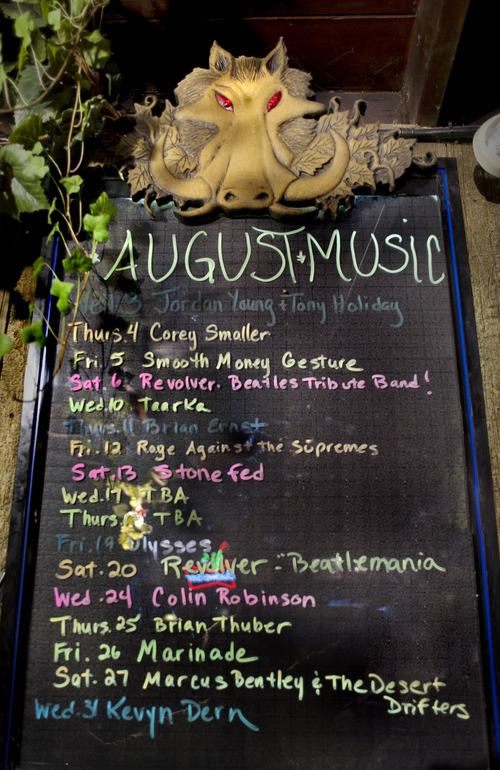 AUGUST MUSIC
Wed 3 Jordan Young + Tony Holiday
Thurs. 4 Corey Smaller
Fri. 5 Smooth Money Gesture
Sat. 6 Revolver. Beatles Tribute Band!
Wed. 10 Taarka
Thurs. 11 Brian Ernst
Fri. 12 Rage Against the Supremes
Sat. 13 Stonefed
Wed. 17 TBA
Thurs. TBA
Fri. 19 Ulysses
Sat. 20 Revolver - Beatlemania
Wed. 24 Colin Robinson
Thurs. 25 Brian Thuber
Fri. 26 Marinade
Sat. 27 Marcus Bentley & The Desert
Drifters
Wed. 31 Kevyn Dern